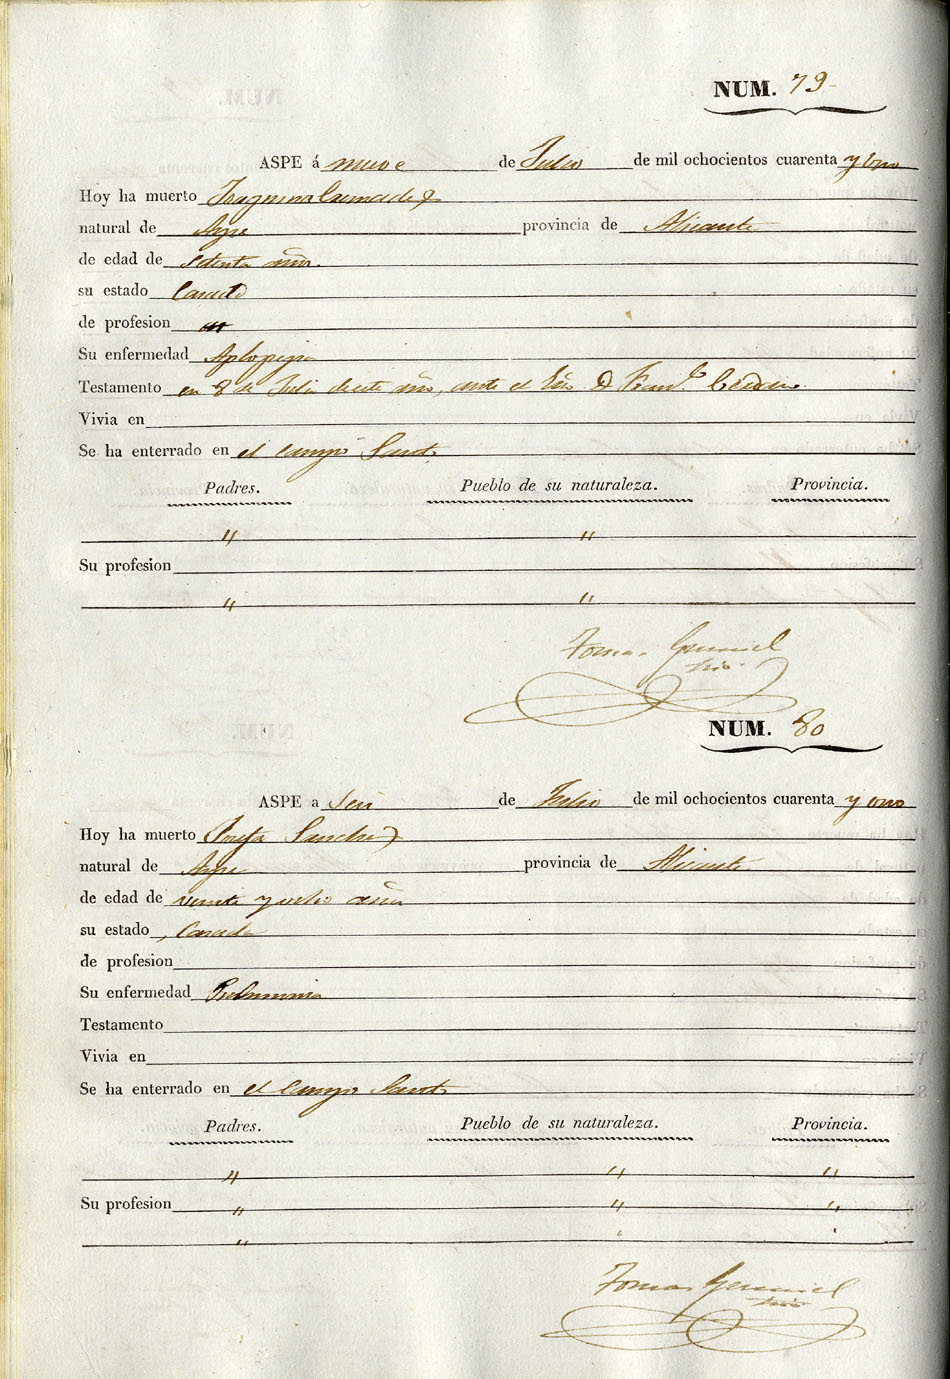 NUM. 79
ASPE á nueve de Julio de mil ochocientos cuarenta y uno
Hoy ha muerto
natural de Aspe provincia de Alicante
de edad de setenta años
su estado Casado
de profesion
Su enfermedad
Testamento en 8 de Julio de este año, ante el Sño D. Franco
Vivia en
Se ha enterrado en el campo Santo
Padres. Pueblo de su naturaleza. Provincia.
" "
Su profesion
" "
Tomas
NUM. 80
ASPE a seis de Julio de mil ochocientos cuarenta y uno
Hoy ha muerto Josefa Sanchez
natural de Aspe provincia de Alicante
de edad de veinte y ocho años
su estado Casada
de profesion
Su enfermedad Pulmonia
Testamento
Vivia en
Se ha enterrado en el Campo Santo
Padres. Pueblo de su naturaleza. Provincia.
" " "
Su profesion " " "
"
Tomas